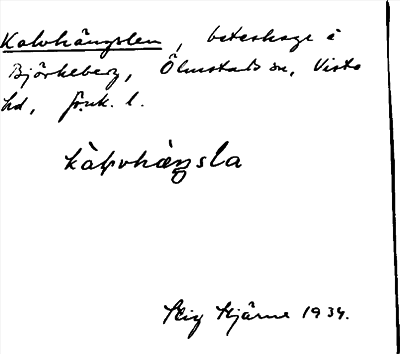 Kalvhängslen, beteshage i
Björkeberg, Ölmstads sn, Vista
hd, fr.uk. l.
kàḷvhæ̀ŋsla
Stig Hjärne 1934.